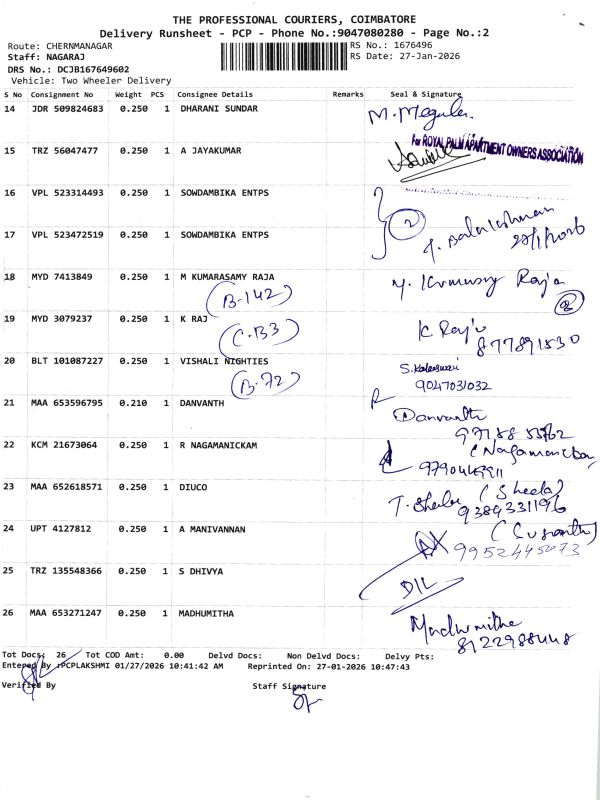 THE PROFESSIONAL COURIERS, COIMBATORE
Delivery Runsheet - PCP - Phone No.:9047080280 - Page No.:2
Route: CHERNMANAGAR
RS No.: 1676496
Staff: NAGARAJ
RS Date: 27-Jan-2026
DRS No.: DCJB167649602
Vehicle: Two Wheeler Delivery
S No Consignment No Weight PCS Consignee Details Remarks Seal & Signature
14 JDR 509824683 0.250 1 DHARANI SUNDAR
M. Megala
For ROYAL PALM APARTMENT OWNERS ASSOCIATION
15 TRZ 56047477 0.250 1 A JAYAKUMAR
16 VPL 523314493 0.250 1 SOWDAMBIKA ENTPS
2
17 VPL 523472519 0.250 1 SOWDAMBIKA ENTPS
18 MYD 7413849 0.250 1 M KUMARASAMY RAJA
B-142
19 MYD 3079237 0.250 1 K RAJ
C-B3
K Raju
20 BLT 101087227 0.250 1 VISHALI NIGHTIES
9047031032
B-72
21 MAA 653596795 0.210 1 DANVANTH
Danvanth
22 KCM 21673064 0.250 1 R NAGAMANICKAM
23 MAA 652618571 0.250 1 DIUCO
(Sheela)
9389331196
24 UPT 4127812 0.250 1 A MANIVANNAN
9952445073
25 TRZ 135548366 0.250 1 S DHIVYA
D/L
26 MAA 653271247 0.250 1 MADHUMITHA
Madhumitha
8122988448
Tot Docs: 26 Tot COD Amt: 0.00 Delvd Docs: Non Delvd Docs: Delvy Pts:
Entered By :PCPLAKSHMI 01/27/2026 10:41:42 AM Reprinted On: 27-01-2026 10:47:43
Verified By Staff Signature